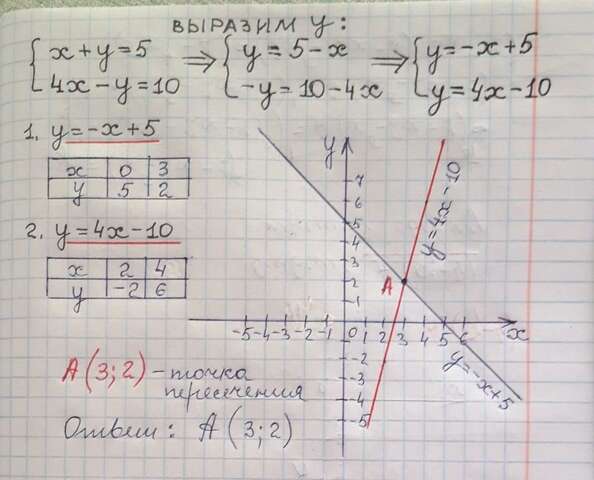 ВЫРАЗИМ y:
{ x+y=5 ⇒ { y=5-x ⇒ { y=-x+5
{ 4x-y=10 { -y=10-4x { y=4x-10
1. y=-x+5
x 0 3
y 5 2
2. y=4x-10
x 2 4
y -2 6
A(3;2) - точка
пересечения
Ответ: A(3;2)
y
7
6
5
4
3
2
1
-5 -4 -3 -2 -1 0 1 2 3 4 5 6 x
-1
-2
-3
-4
-5
A
y=4x-10
y=-x+5